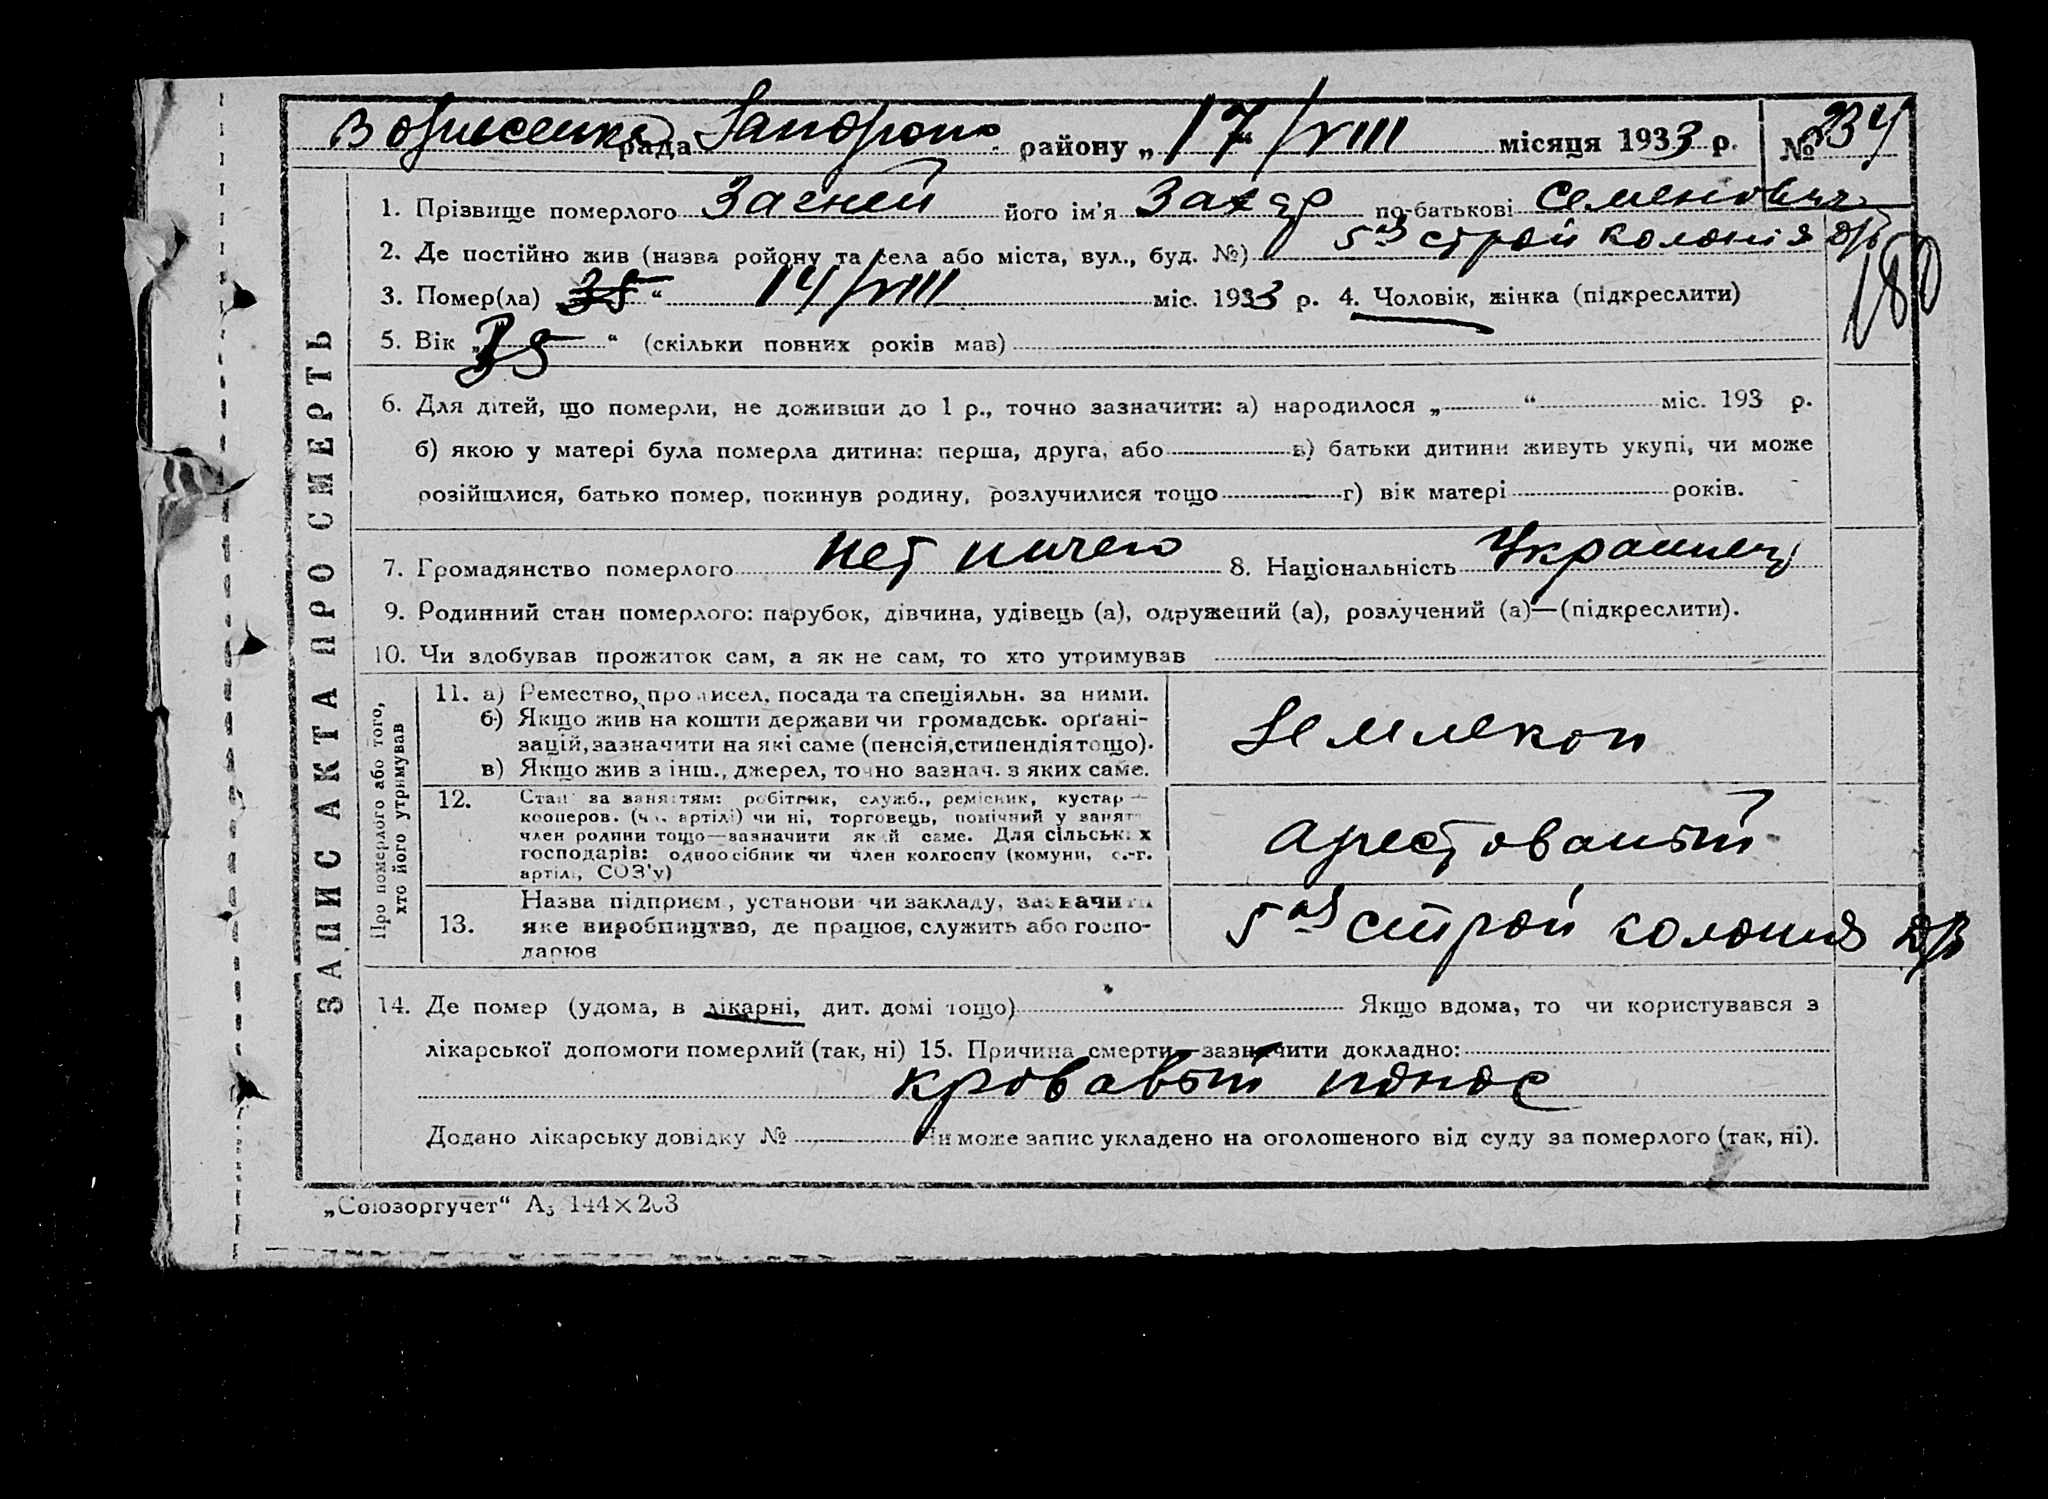 Вознесенка рада Запорож. району „17“/VIII місяця 1933 р. № 234
1. Прізвище померлого Загней його ім'я Захар по-батькові Семенович
2. Де постійно жив (назва ройону та села або міста, вул., буд. №) 5ая строй колонія
180
3. Помер(ла) 35 “ 14/VIII міс. 1933 р. 4. Чоловік, жінка (підкреслити)
5. Вік „35“ (скільки повних років мав)
6. Для дітей, що померли, не доживши до 1 р., точно зазначити: а) народилося „ “ міс. 193 р.
б) якою у матері була померла дитина: перша, друга, або в) батьки дитини живуть укупі, чи може
розійшлися, батько помер, покинув родину, розлучилися тощо г) вік матері років.
7. Громадянство померлого нет ничего 8. Національність Украинец
9. Родинний стан померлого: парубок, дівчина, удівець (а), одружений (а), розлучений (а)—(підкреслити).
10. Чи здобував прожиток сам, а як не сам, то хто утримував
ЗАПИС АКТА ПРО СМЕРТЬ
Про померлого або того,
хто його утримував
11. а) Ремество, промисел, посада та спеціяльн. за ними.
б) Якщо жив на кошти держави чи громадськ. орґані-
зацій, зазначити на які саме (пенсія, стипендія тощо).
в) Якщо жив з інш., джерел, точно зазнач. з яких саме.
Землекоп
12. Стан за заняттям: робітник, служб., ремісник, кустар —
кооперов. (чл. артілі) чи ні, торговець, помічний у занят
член родини тощо—зазначити який саме. Для сільських
господарів: одноосібник чи член колгоспу (комуни, с.-г.
артілі, СОЗ'у)
арестованый
13. Назва підприєм., установи чи закладу, зазначити
яке виробництво, де працює, служить або госпо-
дарює
5ая строй колония
14. Де помер (удома, в лікарні, дит. домі тощо) Якщо вдома, то чи користувався з
лікарської допомоги померлий (так, ні) 15. Причина смерти—зазначити докладно:
кровавый понос
Додано лікарську довідку № Чи може запис укладено на оголошеного від суду за померлого (так, ні).
„Союзоргучет“ А5 144×203